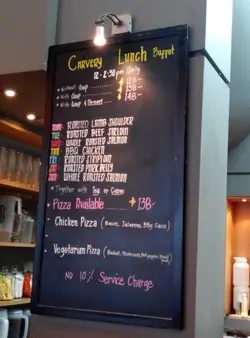 CARVERY LUNCH Buffet
12 - 2:30 pm Only
• Without Soup
• With Soup 13B-
• With Soup & Dessert 14B-
MON: ROASTED LAMB SHOULDER
TUE: ROASTED BEEF SIRLOIN
WED: WHOLE ROASTED SALMON
THU: BBQ CHICKEN
FRI: ROASTED STRIPLOIN
SAT: ROASTED PORK BELLY
SUN: WHOLE ROASTED SALMON
* Together with Tea or Coffee
Pizza Available........ 13B-
Chicken Pizza (Bacon, Jalapeno, BBQ Sauce)
Vegetarian Pizza (Rocket, Mushroom,
NO 10% Service Charge